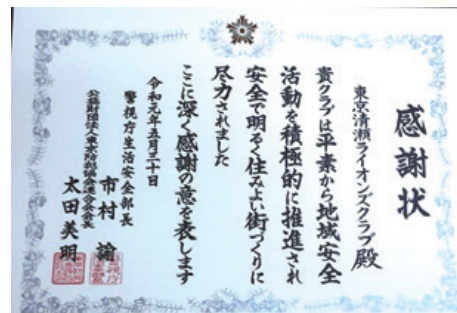 感謝状
東京清瀬ライオンズクラブ殿
貴クラブは平素から地域安全
活動を積極的に推進され
安全で明るく住みよい街づくりに
尽力されました
ここに深く感謝の意を表します
令和六年五月三十日
警視庁生活安全部長
市村 諭
公益財団法人東京防犯協会連合会会長
太田英明